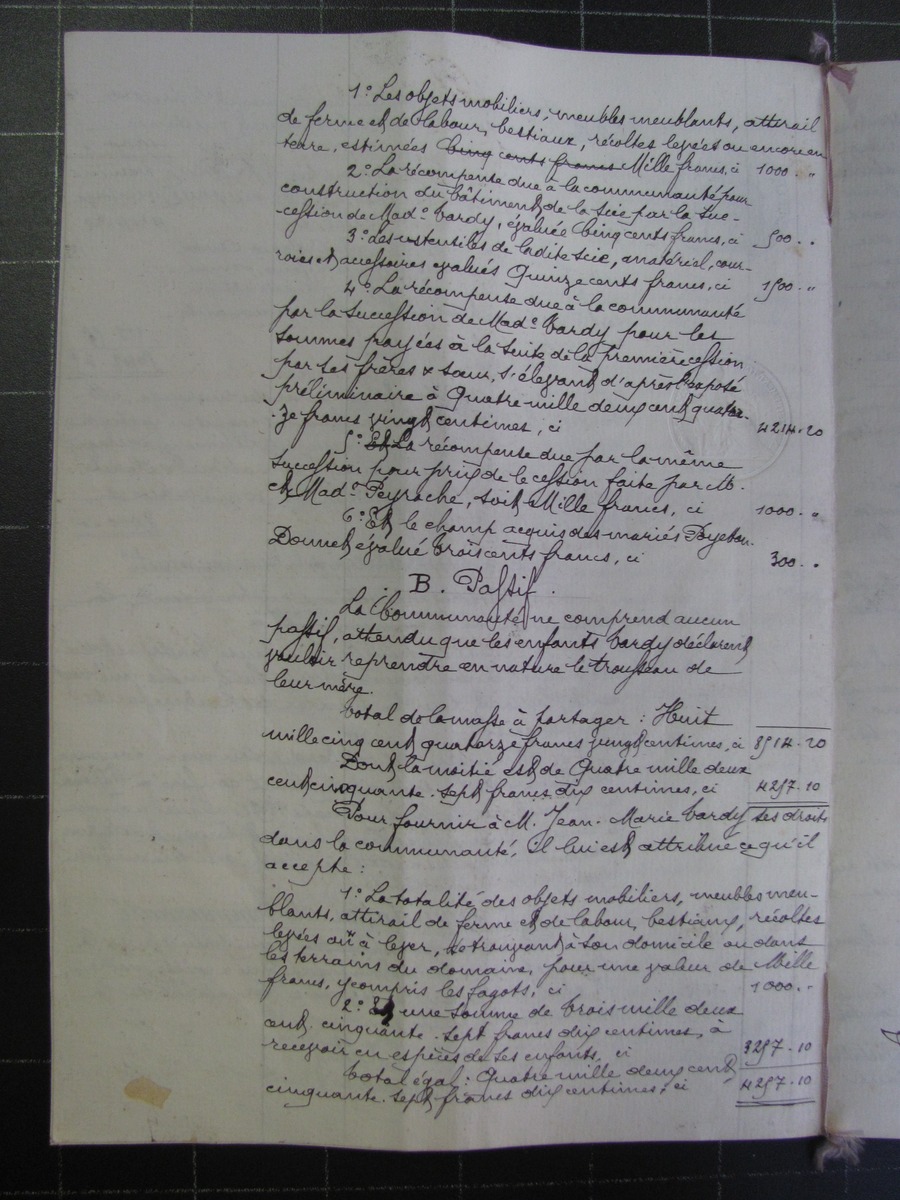 1° Les objets mobiliers, meubles meublants, attirail
de ferme et de labour, bestiaux, récoltes levées ou encore en
terre, estimées Cinq cents francs Mille francs, ci 1000 . "
2° La récompense due à la communauté pour
construction du bâtiment de la scie par la suc-
-cession de Mad.e Vardy, évaluée Cinq cents francs, ci 500 . .
3° Les ustensiles de ladite scie, matériel, cour-
roies et accessoires évalués Quinze cents francs, ci 1500 . "
4° La récompense due à la communauté
par la succession de Mad.e Vardy pour les
sommes payées à la suite de la première cession
par ses frères & sœur, s'élevant d'après l'exposé
préliminaire à Quatre mille deux cent quator-
-ze francs vingt centimes, ci 4214.20
5° Et La récompense due par la même
succession pour prix de la cession faite par M.
et Mad.e Peyrache, soit Mille francs, ci 1000 . "
6° Et le champ acquis des mariés Poyet-
Donnet évalué Trois cents francs, ci 300 . .
B. Passif.
La Communauté ne comprend aucun
passif, attendu que les enfants Vardy déclarent
vouloir reprendre en nature le trousseau de
leur mère.
Total de la masse à partager : Huit
mille cinq cent quatorze francs vingt centimes, ci 8514.20
Dont la moitié est de Quatre mille deux
cent cinquante-sept francs dix centimes, ci 4257.10
Pour fournir à M. Jean-Marie Vardy ses droits
dans la communauté, il lui est attribué ce qu'il
accepte :
1° La totalité des objets mobiliers, meubles meu-
blants, attirail de ferme et de labour, bestiaux, récoltes
levées ou à lever, se trouvant à son domicile ou dans
les terrains du domaine, pour une valeur de Mille
francs, y compris les fagots, ci 1000 . .
2° Et une somme de Trois mille deux
cent cinquante-sept francs dix centimes, à
recevoir en espèces de ses enfants, ci 3257.10
Total égal : Quatre mille deux cent
cinquante-sept francs dix centimes, ci 4257.10